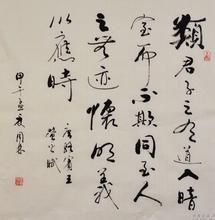 類君子之有道入暗
室而不欺同至人
之無迹懷明義
以應時
唐駱賓王
螢火賦
甲午孟夏